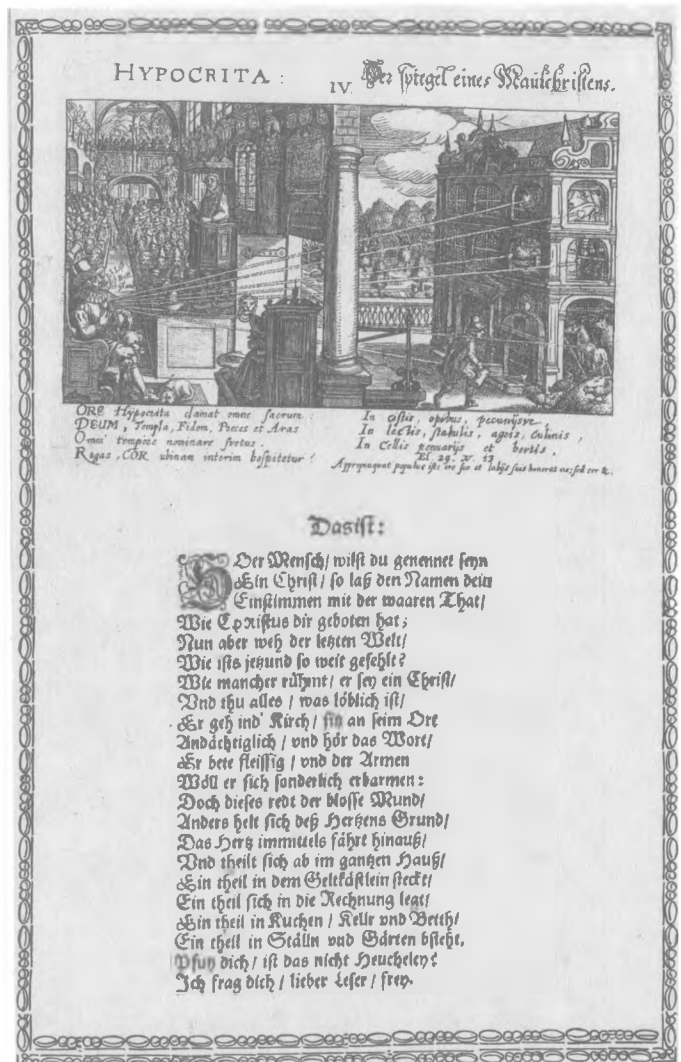 HYPOCRITA :
IV. Der spiegel eines Maulchristens.
ORE Hypocrita clamat omne sacrum:
DEUM, Templa, Fidem, Preces et Aras
Omni tempore nominare fretus.
Rogas, COR ubinam interim hospitetur?
In cistis, opibus, pecunijsve
In lectis, stabulis, agris, culinis,
In Cellis penuarijs et hortis.
El. 29. v. 13
Appropinquat populus iste ore suo et labijs suis honorat me; sed cor &c.
Das ist:
O Der Mensch / wilst du genennet seyn
Ein Christ / so laß den Namen dein
Einstimmen mit der waaren That /
Wie Christus dir geboten hat;
Nun aber weh der letzten Welt /
Wie ists jetzund so weit gefehlt?
Wie mancher rühmt / er sey ein Christ /
Vnd thu alles / was löblich ist /
Er geh ind' Kirch / sin an seim Ort
Andächtiglich / vnd hör das Wort /
Er bete fleissig / vnd der Armen
Wöll er sich sonderlich erbarmen:
Doch dieses redt der blosse Mund /
Anders helt sich deß Hertzens Grund /
Das Hertz immittels fährt hinauß /
Vnd theilt sich ab im gantzen Hauß /
Ein theil in dem Geltkästlein steckt /
Ein theil sich in die Rechnung legt /
Ein theil in Kuchen / Kellr vnd Betth /
Ein theil in Ställn vnd Gärten bsteht.
Pfuy dich / ist das nicht Heucheley?
Ich frag dich / lieber Leser / frey.